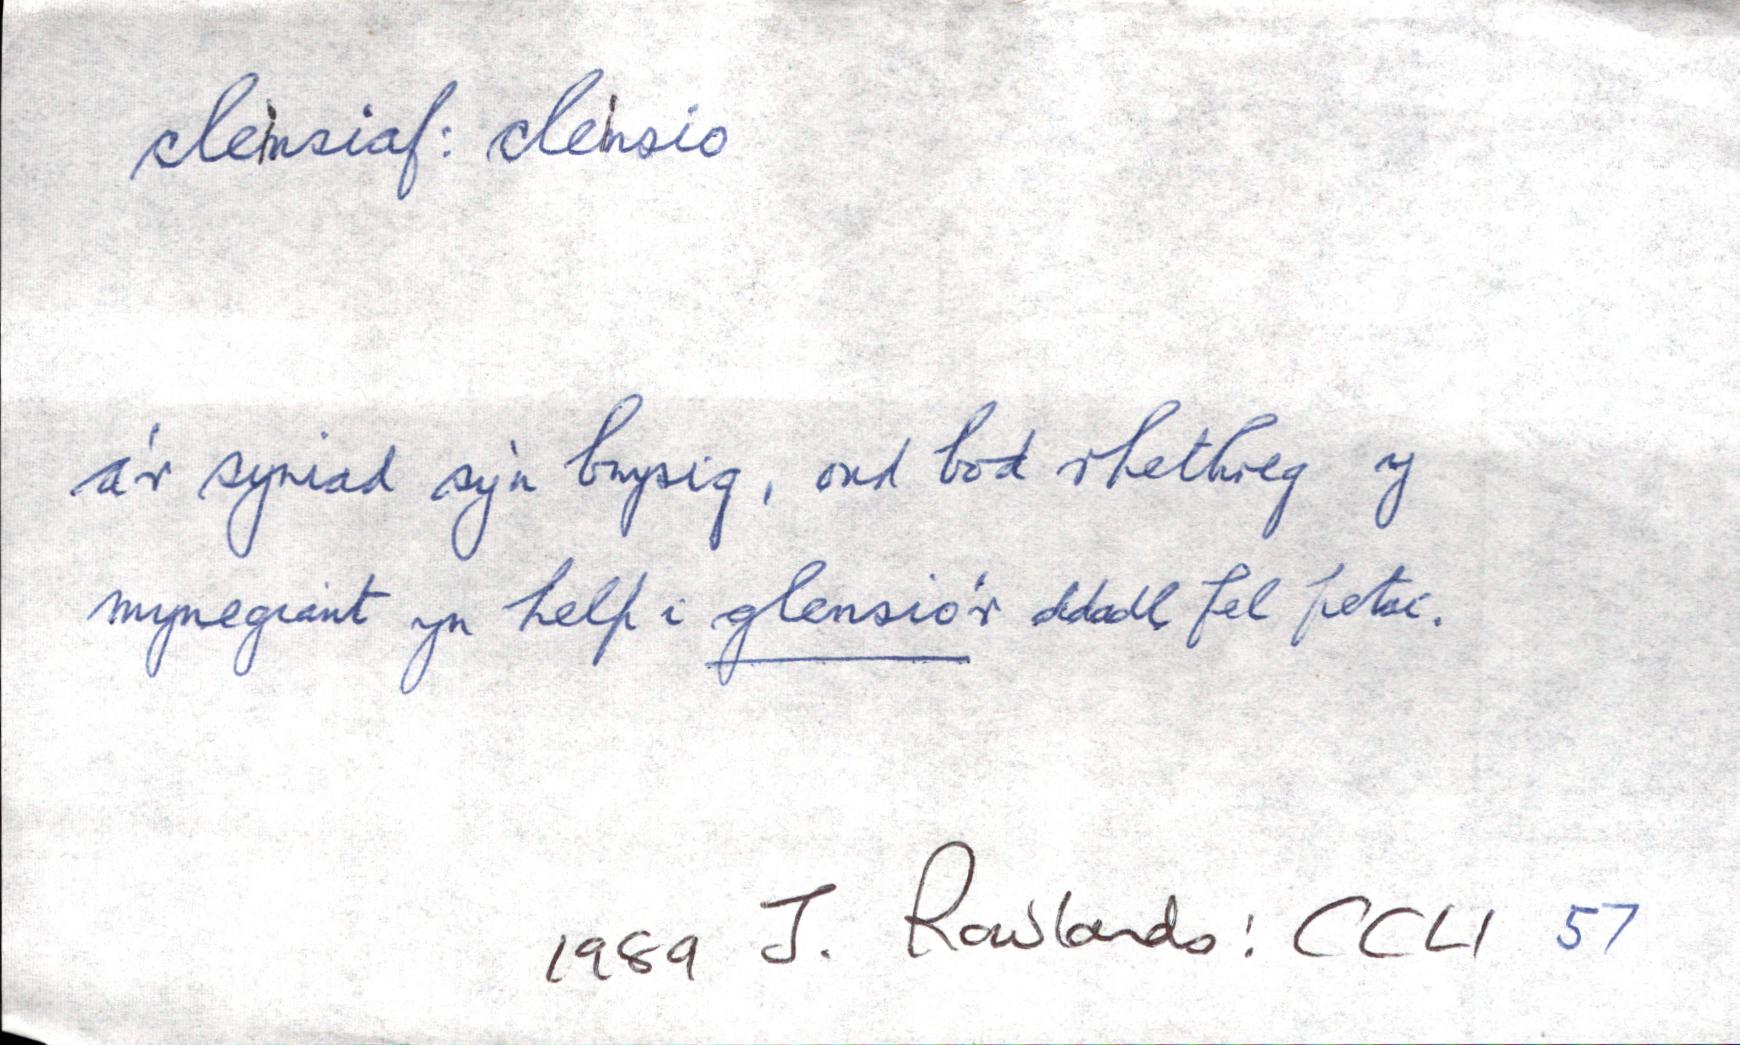 clensiaf: clensio
a'r syniad sy'n bwysig, ond bod rhethreg y
mynegiant yn help i glensio'r ddadl, fel petai.
1989 J. Rowlands: CCLl 57